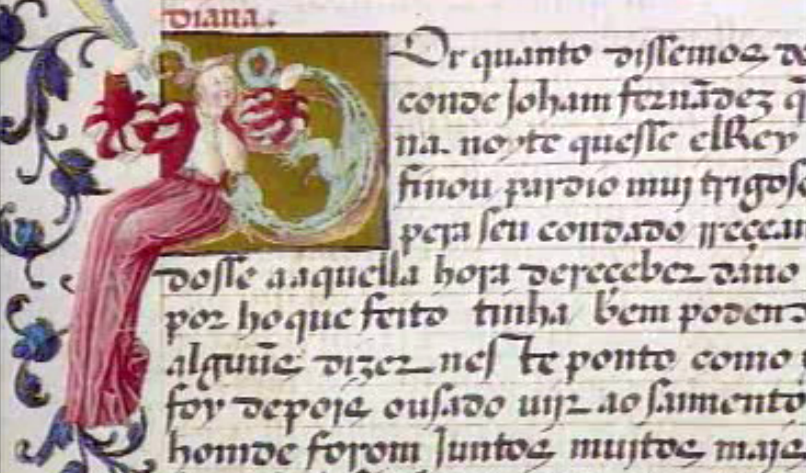 diana.
Or quanto dissemos do
conde Joham fernãdez q̃
na noyte quesse elRey
finou pardio muj trigos
pera seu condado rreçean
dosse aaquella hora dereçeber dano
por ho que feito tinha bem podem
alguũs dizer neste ponto como
foy depois ousado uijr ao saimento
homde forom Juntos muitos mais